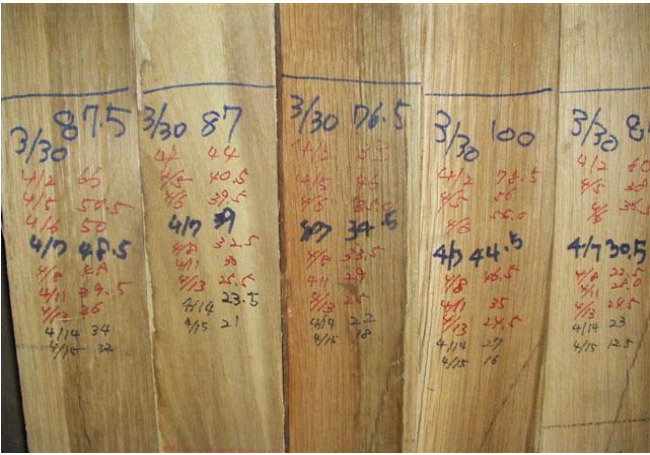 3/30 87.5
4/2 65
4/5 56.5
4/6 50
4/7 48.5
4/8 48
4/11 39.5
4/12 36
4/14 34
4/15 32
3/30 87
4/2 44
4/5 40.5
4/6 39.5
4/7
4/8 32.5
4/11 30
4/13 25.5
4/14 23.5
4/15 21
3/30 76.5
4/2 53
4/5 46
4/6
4/7 34.5
4/8 33.5
4/11 29
4/13 25
4/14 22
4/15 18
3/30 100
4/2 78.5
4/5 56
4/6
4/7 44.5
4/8 46.5
4/11 35
4/13 29.5
4/14 27
4/15 16
3/30
4/2 60
4/5 38
4/6
4/7 30.5
4/8
4/11
4/13 24.5
4/14 23
4/15 12.5